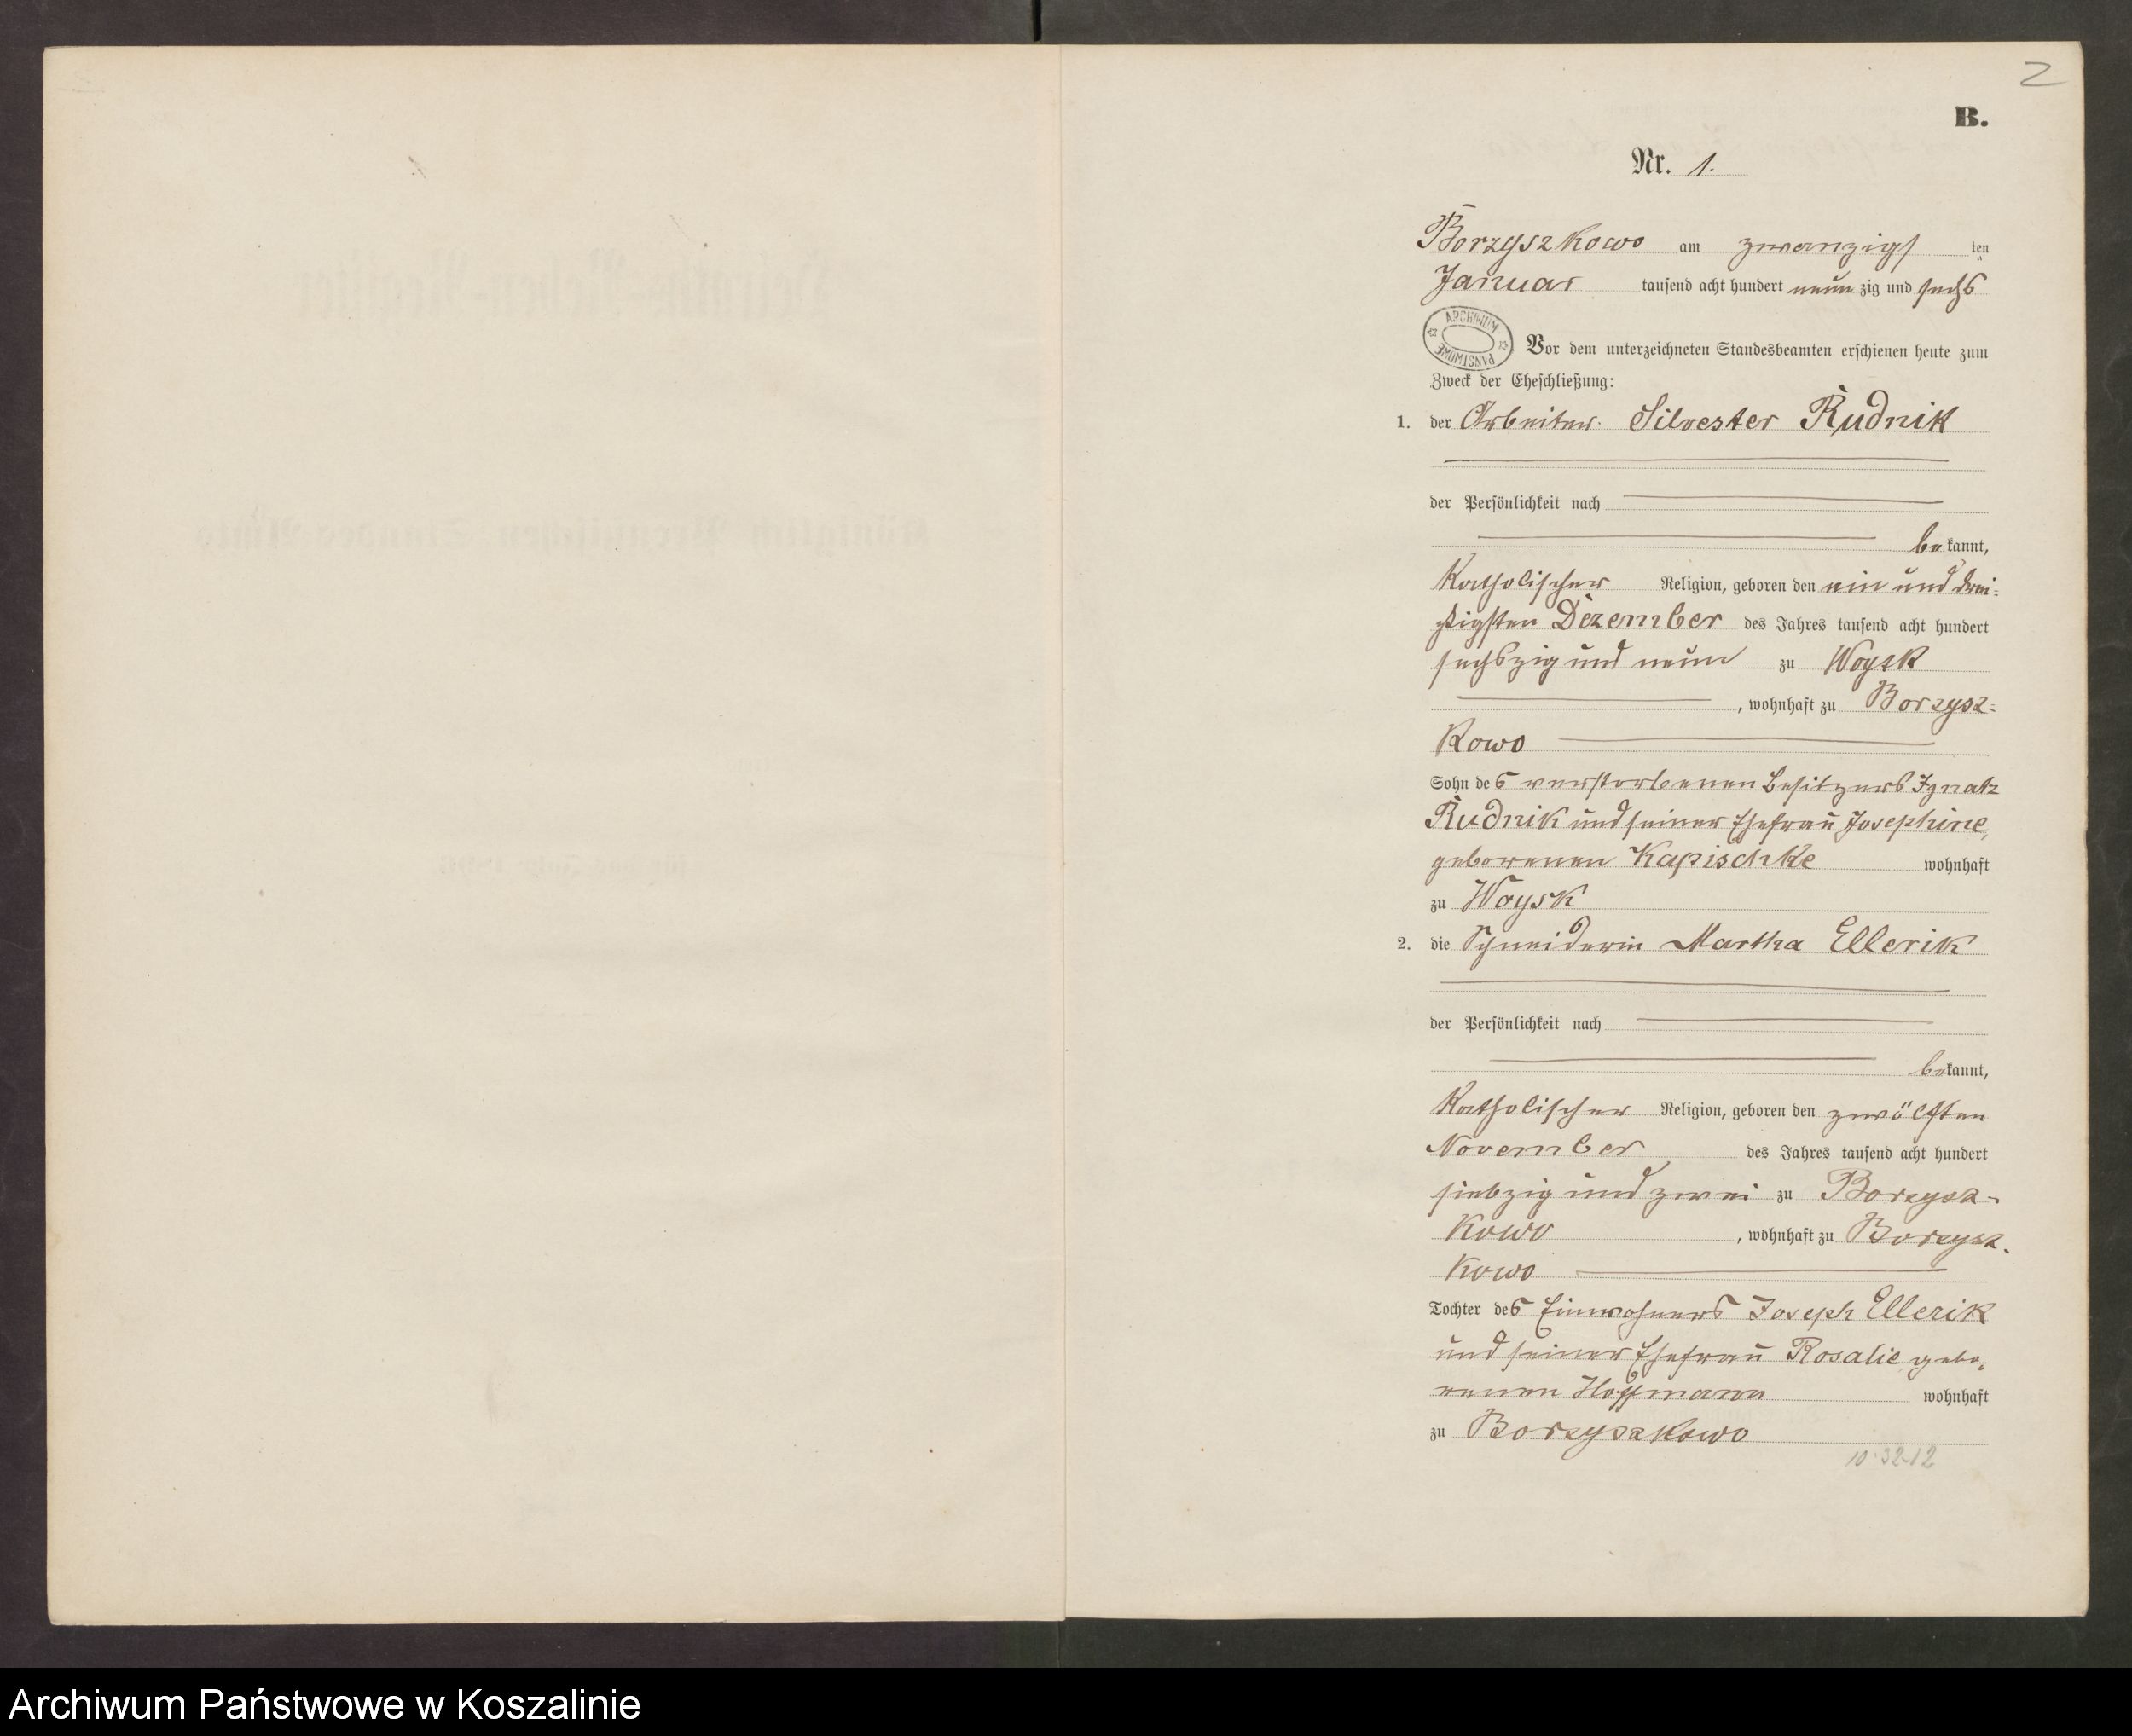 2
B.
Nr. 1.
Borzyszkowo am zwanzigs ten
Januar tausend acht hundert neun zig und sechs
ARCHIWUM PAŃSTWOWE
Vor dem unterzeichneten Standesbeamten erschienen heute zum
Zweck der Eheschließung:
1. der Arbeiter Silvester Rudnik
der Persönlichkeit nach
be kannt,
katholischer Religion, geboren den ein und drei-
ßigsten Dezember des Jahres tausend acht hundert
sechszig und neun zu Woysk
, wohnhaft zu Borzysz-
kowo
Sohn des verstorbenen Besitzers Ignatz
Rudnik und seiner Ehefrau Josephine,
geborenen Kapischke wohnhaft
zu Woysk
2. die Schneiderin Martha Ellerik
der Persönlichkeit nach
be kannt,
katholischer Religion, geboren den zwölften
November des Jahres tausend acht hundert
siebzig und zwei zu Borzysz-
kowo , wohnhaft zu Borzysz-
kowo
Tochter des Einwohners Joseph Ellerik
und seiner Ehefrau Rosalie gebo-
renen Hoffmann wohnhaft
zu Borzyszkowo
10-32-12
Archiwum Państwowe w Koszalinie